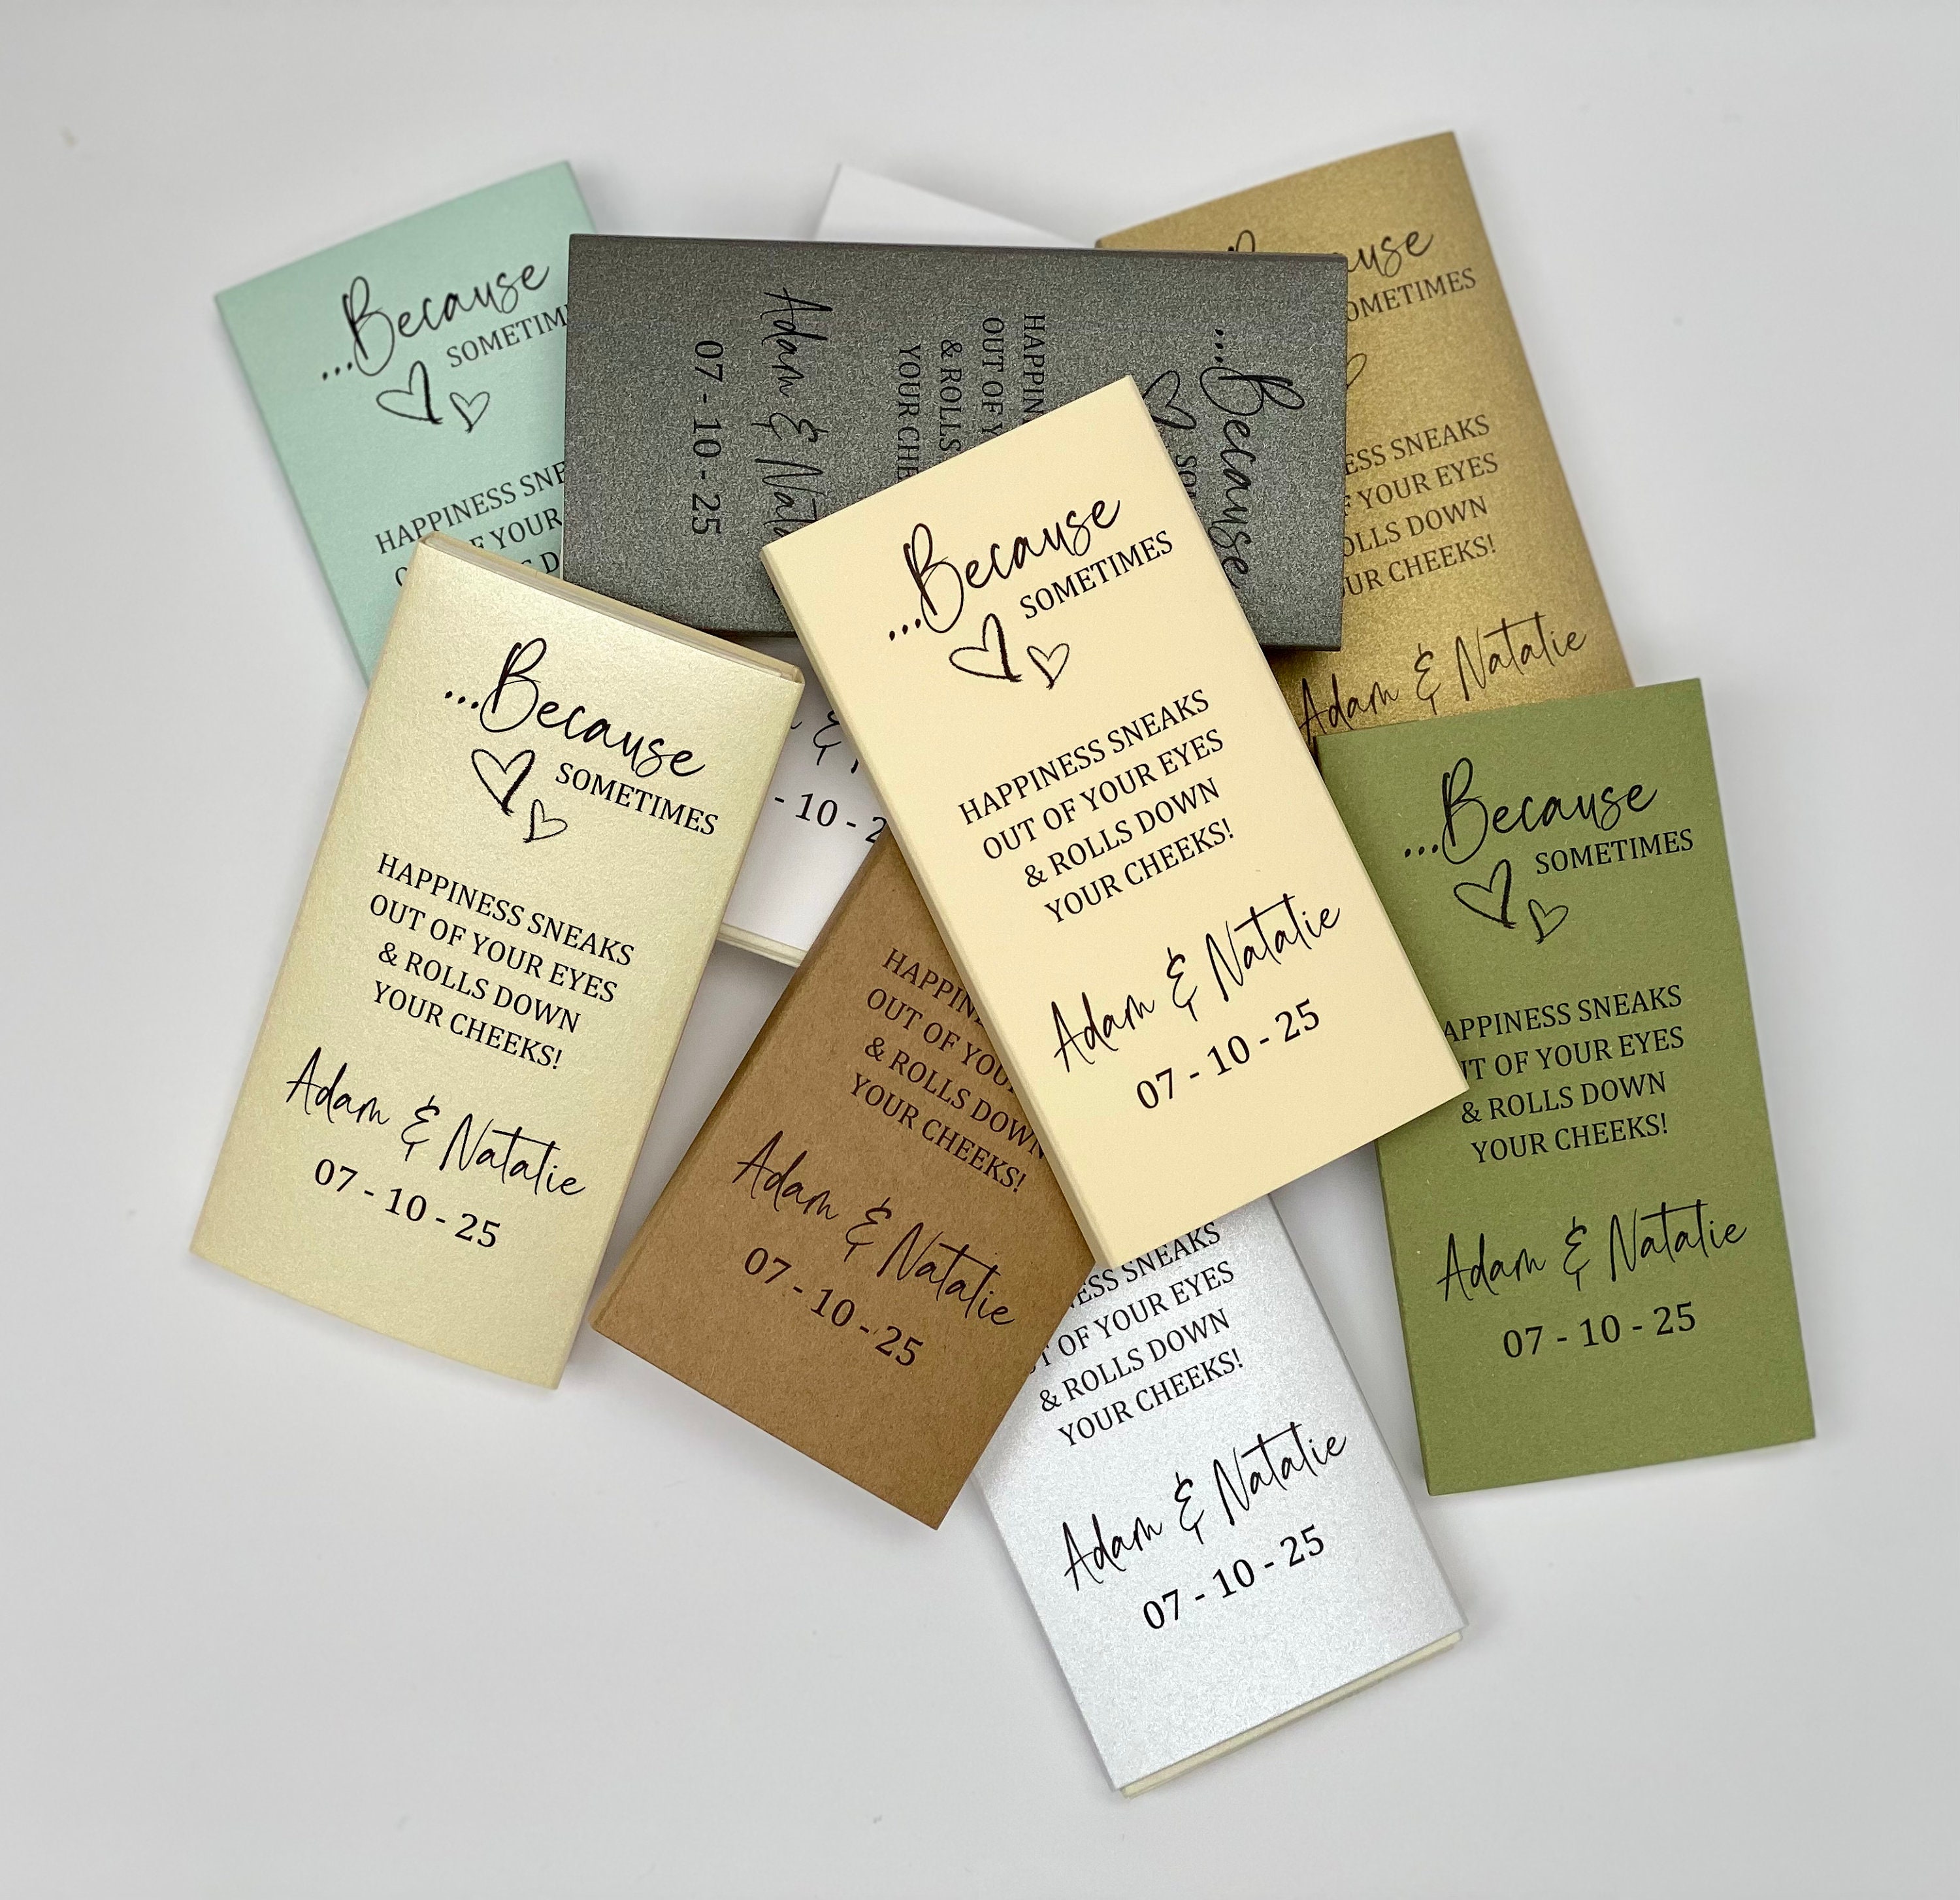 ...Because
SOMETIM
HAPPINESS SNE
YOUR
...Because
HAPPIN
OUT OF
& ROLLS
YOUR CHE
Adam & Nat
07 - 10 - 25
use
OMETIMES
ESS SNEAKS
YOUR EYES
OLLS DOWN
UR CHEEKS!
Adam & Natalie
...Because
SOMETIMES
HAPPINESS SNEAKS
OUT OF YOUR EYES
& ROLLS DOWN
YOUR CHEEKS!
Adam & Natalie
07 - 10 - 25
...Because
SOMETIMES
HAPPINESS SNEAKS
OUT OF YOUR EYES
& ROLLS DOWN
YOUR CHEEKS!
Adam & Natalie
07 - 10 - 25
&
- 10 - 2
HAPPIN
OUT OF YOU
& ROLLS DOWN
YOUR CHEEKS!
Adam & Natalie
07 - 10 - 25
...Because
SOMETIMES
APPINESS SNEAKS
UT OF YOUR EYES
& ROLLS DOWN
YOUR CHEEKS!
Adam & Natalie
07 - 10 - 25
ESS SNEAKS
OF YOUR EYES
& ROLLS DOWN
YOUR CHEEKS!
Adam & Natalie
07 - 10 - 25